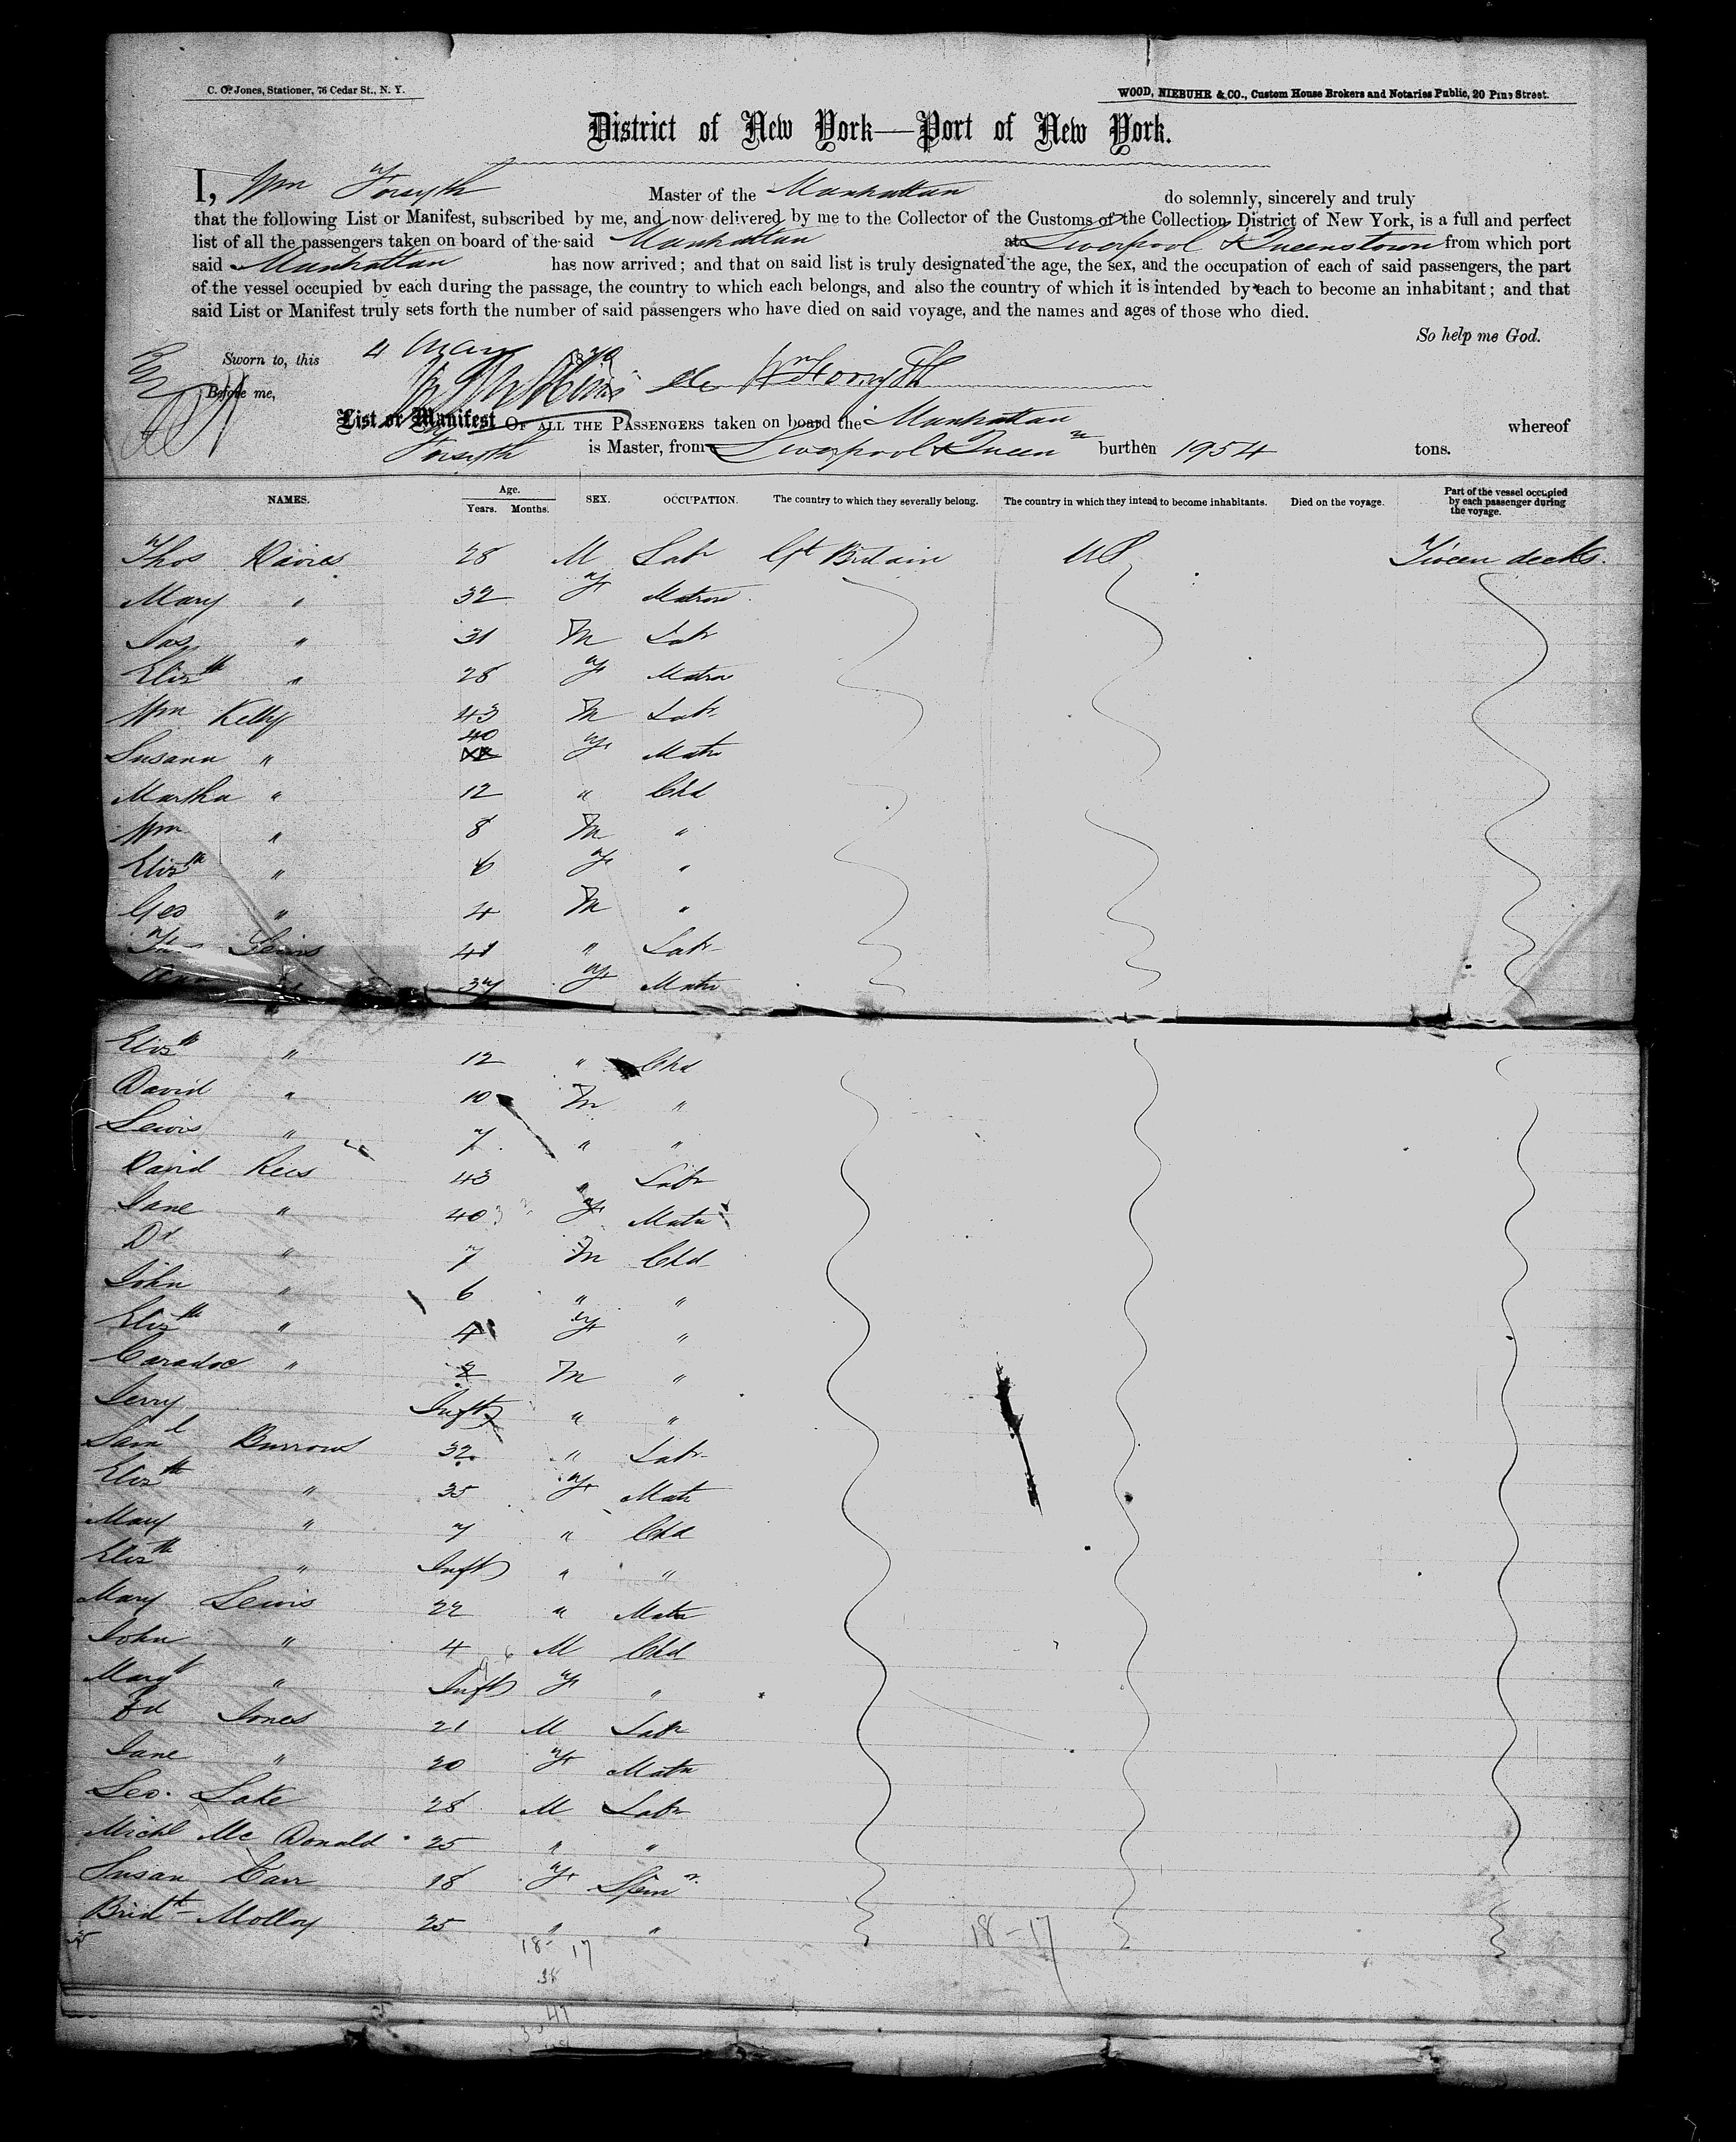 C. O. Jones, Stationer, 76 Cedar St., N. Y.
WOOD, NIEBUHR & CO., Custom House Brokers and Notaries Public, 20 Pine Street.
District of New York—Port of New York.
I, Wm Forsyth Master of the Manhattan do solemnly, sincerely and truly
that the following List or Manifest, subscribed by me, and now delivered by me to the Collector of the Customs of the Collection District of New York, is a full and perfect
list of all the passengers taken on board of the said Manhattan at Liverpool & Queenstown from which port
said Manhattan has now arrived; and that on said list is truly designated the age, the sex, and the occupation of each of said passengers, the part
of the vessel occupied by each during the passage, the country to which each belongs, and also the country of which it is intended by each to become an inhabitant; and that
said List or Manifest truly sets forth the number of said passengers who have died on said voyage, and the names and ages of those who died.
So help me God.
Sworn to, this 4 May 1870
Before me, Wm Forsyth
List or Manifest OF ALL THE PASSENGERS taken on board the Manhattan whereof
Forsyth is Master, from Liverpool & Queen burthen 1954 tons.
NAMES. Age. Years. Months. SEX. OCCUPATION. The country to which they severally belong. The country in which they intend to become inhabitants. Died on the voyage. Part of the vessel occupied by each passenger during the voyage.
Thos Davies 28 M Labr Gt Britain US Tween decks.
Mary " 32 F Matron
Jas " 31 M Labr
Elizth " 28 F Matron
Wm Kelly 43 M Labr
Susann " 40 F Matn
Martha " 12 " Chd
Wm " 8 M "
Elizth " 6 F "
Geo " 4 M "
Lewis 41 " Labr
37 F Matn
Elizth " 12 " Chd
David " 10 M "
Lewis " 7 " "
David Rees 43 " Labr
Jane " 40 F Matn
Dd " 7 M Chd
John " 6 " "
Elizth " 4 F "
Caradoc " 2 M "
Jerry Inft " "
Saml Burrows 32 " Labr
Elizth " 35 F Matn
Mary " 7 " Chd
Elizth " Inft " "
Mary Lewis 22 " Matn
John " 4 M Chd
Margt " Inft F "
Ed Jones 21 M Labr
Jane " 20 F Matn
Leo. Lake 28 M Labr
Michl Mc Donald 25 " "
Susan Carr 18 F Spinr
Bridt Molloy 25 " "
18 - 17 18 - 17